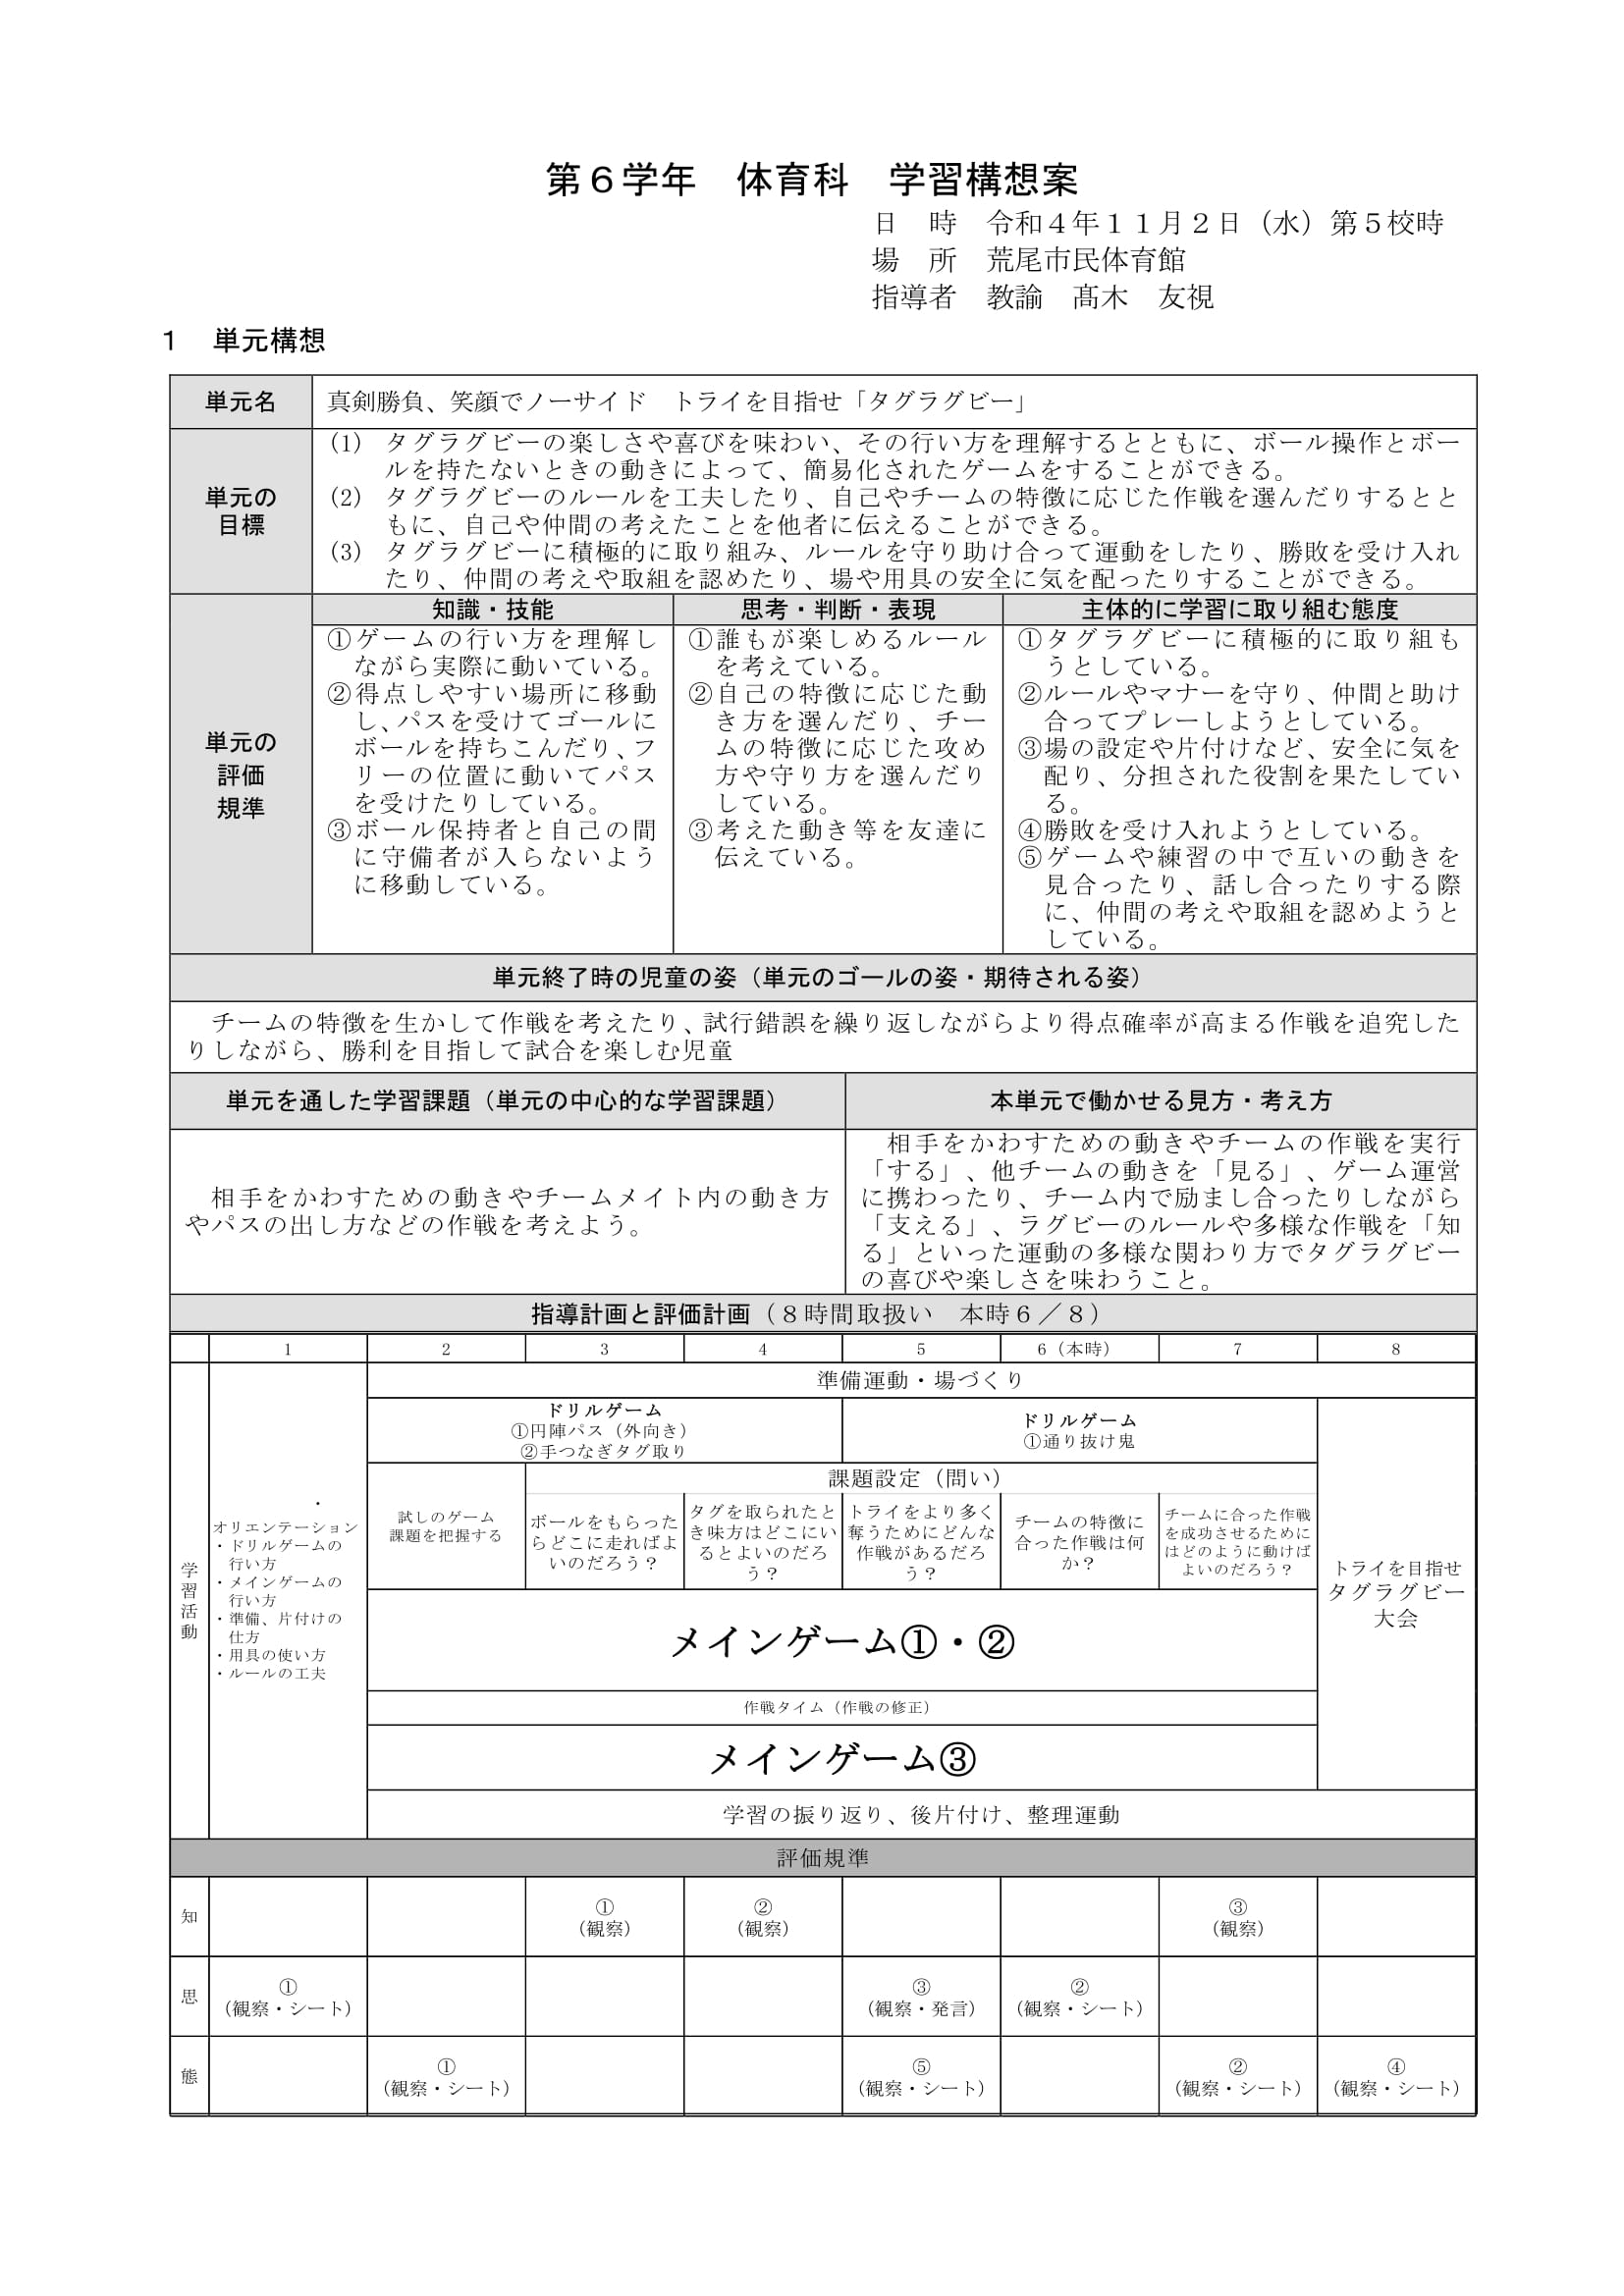 第６学年　体育科　学習構想案
日　時　令和４年１１月２日（水）第５校時
場　所　荒尾市民体育館
指導者　教諭　髙木　友視
１　単元構想
単元名
真剣勝負、笑顔でノーサイド　トライを目指せ「タグラグビー」
単元の
目標
(1)　タグラグビーの楽しさや喜びを味わい、その行い方を理解するとともに、ボール操作とボー
ルを持たないときの動きによって、簡易化されたゲームをすることができる。
(2)　タグラグビーのルールを工夫したり、自己やチームの特徴に応じた作戦を選んだりするとと
もに、自己や仲間の考えたことを他者に伝えることができる。
(3)　タグラグビーに積極的に取り組み、ルールを守り助け合って運動をしたり、勝敗を受け入れ
たり、仲間の考えや取組を認めたり、場や用具の安全に気を配ったりすることができる。
単元の
評価
規準
知識・技能
①ゲームの行い方を理解し
ながら実際に動いている。
②得点しやすい場所に移動
し、パスを受けてゴールに
ボールを持ちこんだり、フ
リーの位置に動いてパス
を受けたりしている。
③ボール保持者と自己の間
に守備者が入らないよう
に移動している。
思考・判断・表現
①誰もが楽しめるルール
を考えている。
②自己の特徴に応じた動
き方を選んだり、チー
ムの特徴に応じた攻め
方や守り方を選んだり
している。
③考えた動き等を友達に
伝えている。
主体的に学習に取り組む態度
①タグラグビーに積極的に取り組も
うとしている。
②ルールやマナーを守り、仲間と助け
合ってプレーしようとしている。
③場の設定や片付けなど、安全に気を
配り、分担された役割を果たしてい
る。
④勝敗を受け入れようとしている。
⑤ゲームや練習の中で互いの動きを
見合ったり、話し合ったりする際
に、仲間の考えや取組を認めようと
している。
単元終了時の児童の姿（単元のゴールの姿・期待される姿）
チームの特徴を生かして作戦を考えたり、試行錯誤を繰り返しながらより得点確率が高まる作戦を追究した
りしながら、勝利を目指して試合を楽しむ児童
単元を通した学習課題（単元の中心的な学習課題）
相手をかわすための動きやチームメイト内の動き方
やパスの出し方などの作戦を考えよう。
本単元で働かせる見方・考え方
相手をかわすための動きやチームの作戦を実行
「する」、他チームの動きを「見る」、ゲーム運営
に携わったり、チーム内で励まし合ったりしながら
「支える」、ラグビーのルールや多様な作戦を「知
る」といった運動の多様な関わり方でタグラグビー
の喜びや楽しさを味わうこと。
指導計画と評価計画（８時間取扱い　本時６／８）
1　2　3　4　5　6（本時）　7　8
学習活動
・
オリエンテーション
・ドリルゲームの
行い方
・メインゲームの
行い方
・準備、片付けの
仕方
・用具の使い方
・ルールの工夫
準備運動・場づくり
ドリルゲーム
①円陣パス（外向き）
②手つなぎタグ取り
ドリルゲーム
①通り抜け鬼
試しのゲーム
課題を把握する
課題設定（問い）
ボールをもらった
らどこに走ればよ
いのだろう？
タグを取られたと
き味方はどこにい
るとよいのだろ
う？
トライをより多く
奪うためにどんな
作戦があるだろ
う？
チームの特徴に
合った作戦は何
か？
チームに合った作戦
を成功させるために
はどのように動けば
よいのだろう？
メインゲーム①・②
作戦タイム（作戦の修正）
メインゲーム③
トライを目指せ
タグラグビー
大会
学習の振り返り、後片付け、整理運動
評価規準
知
①
（観察）
②
（観察）
③
（観察）
思
①
（観察・シート）
③
（観察・発言）
②
（観察・シート）
態
①
（観察・シート）
⑤
（観察・シート）
②
（観察・シート）
④
（観察・シート）